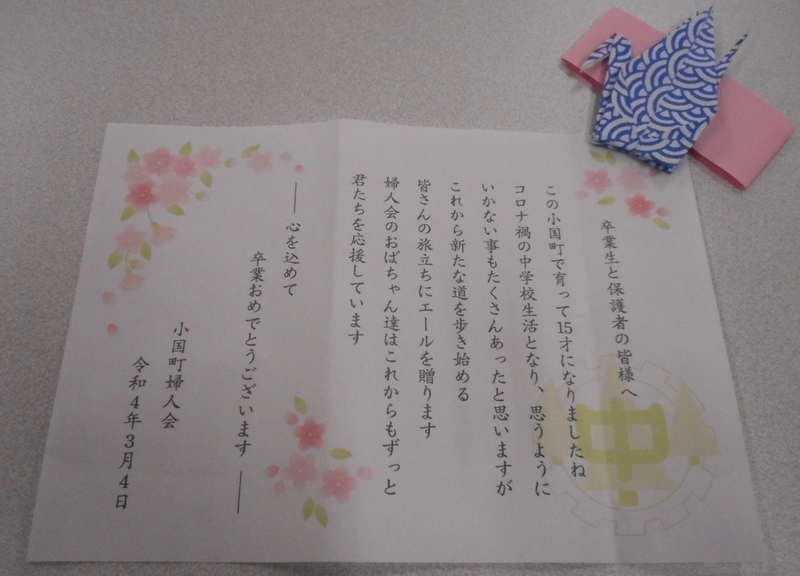 卒業生と保護者の皆様へ
この小国町で育って15才になりましたね
コロナ禍の中学校生活となり、思うように
いかない事もたくさんあったと思いますが
これから新たな道を歩き始める
皆さんの旅立ちにエールを贈ります
婦人会のおばちゃん達はこれからもずっと
君たちを応援しています
――心を込めて
卒業おめでとうございます――
小国町婦人会
令和4年3月4日
中